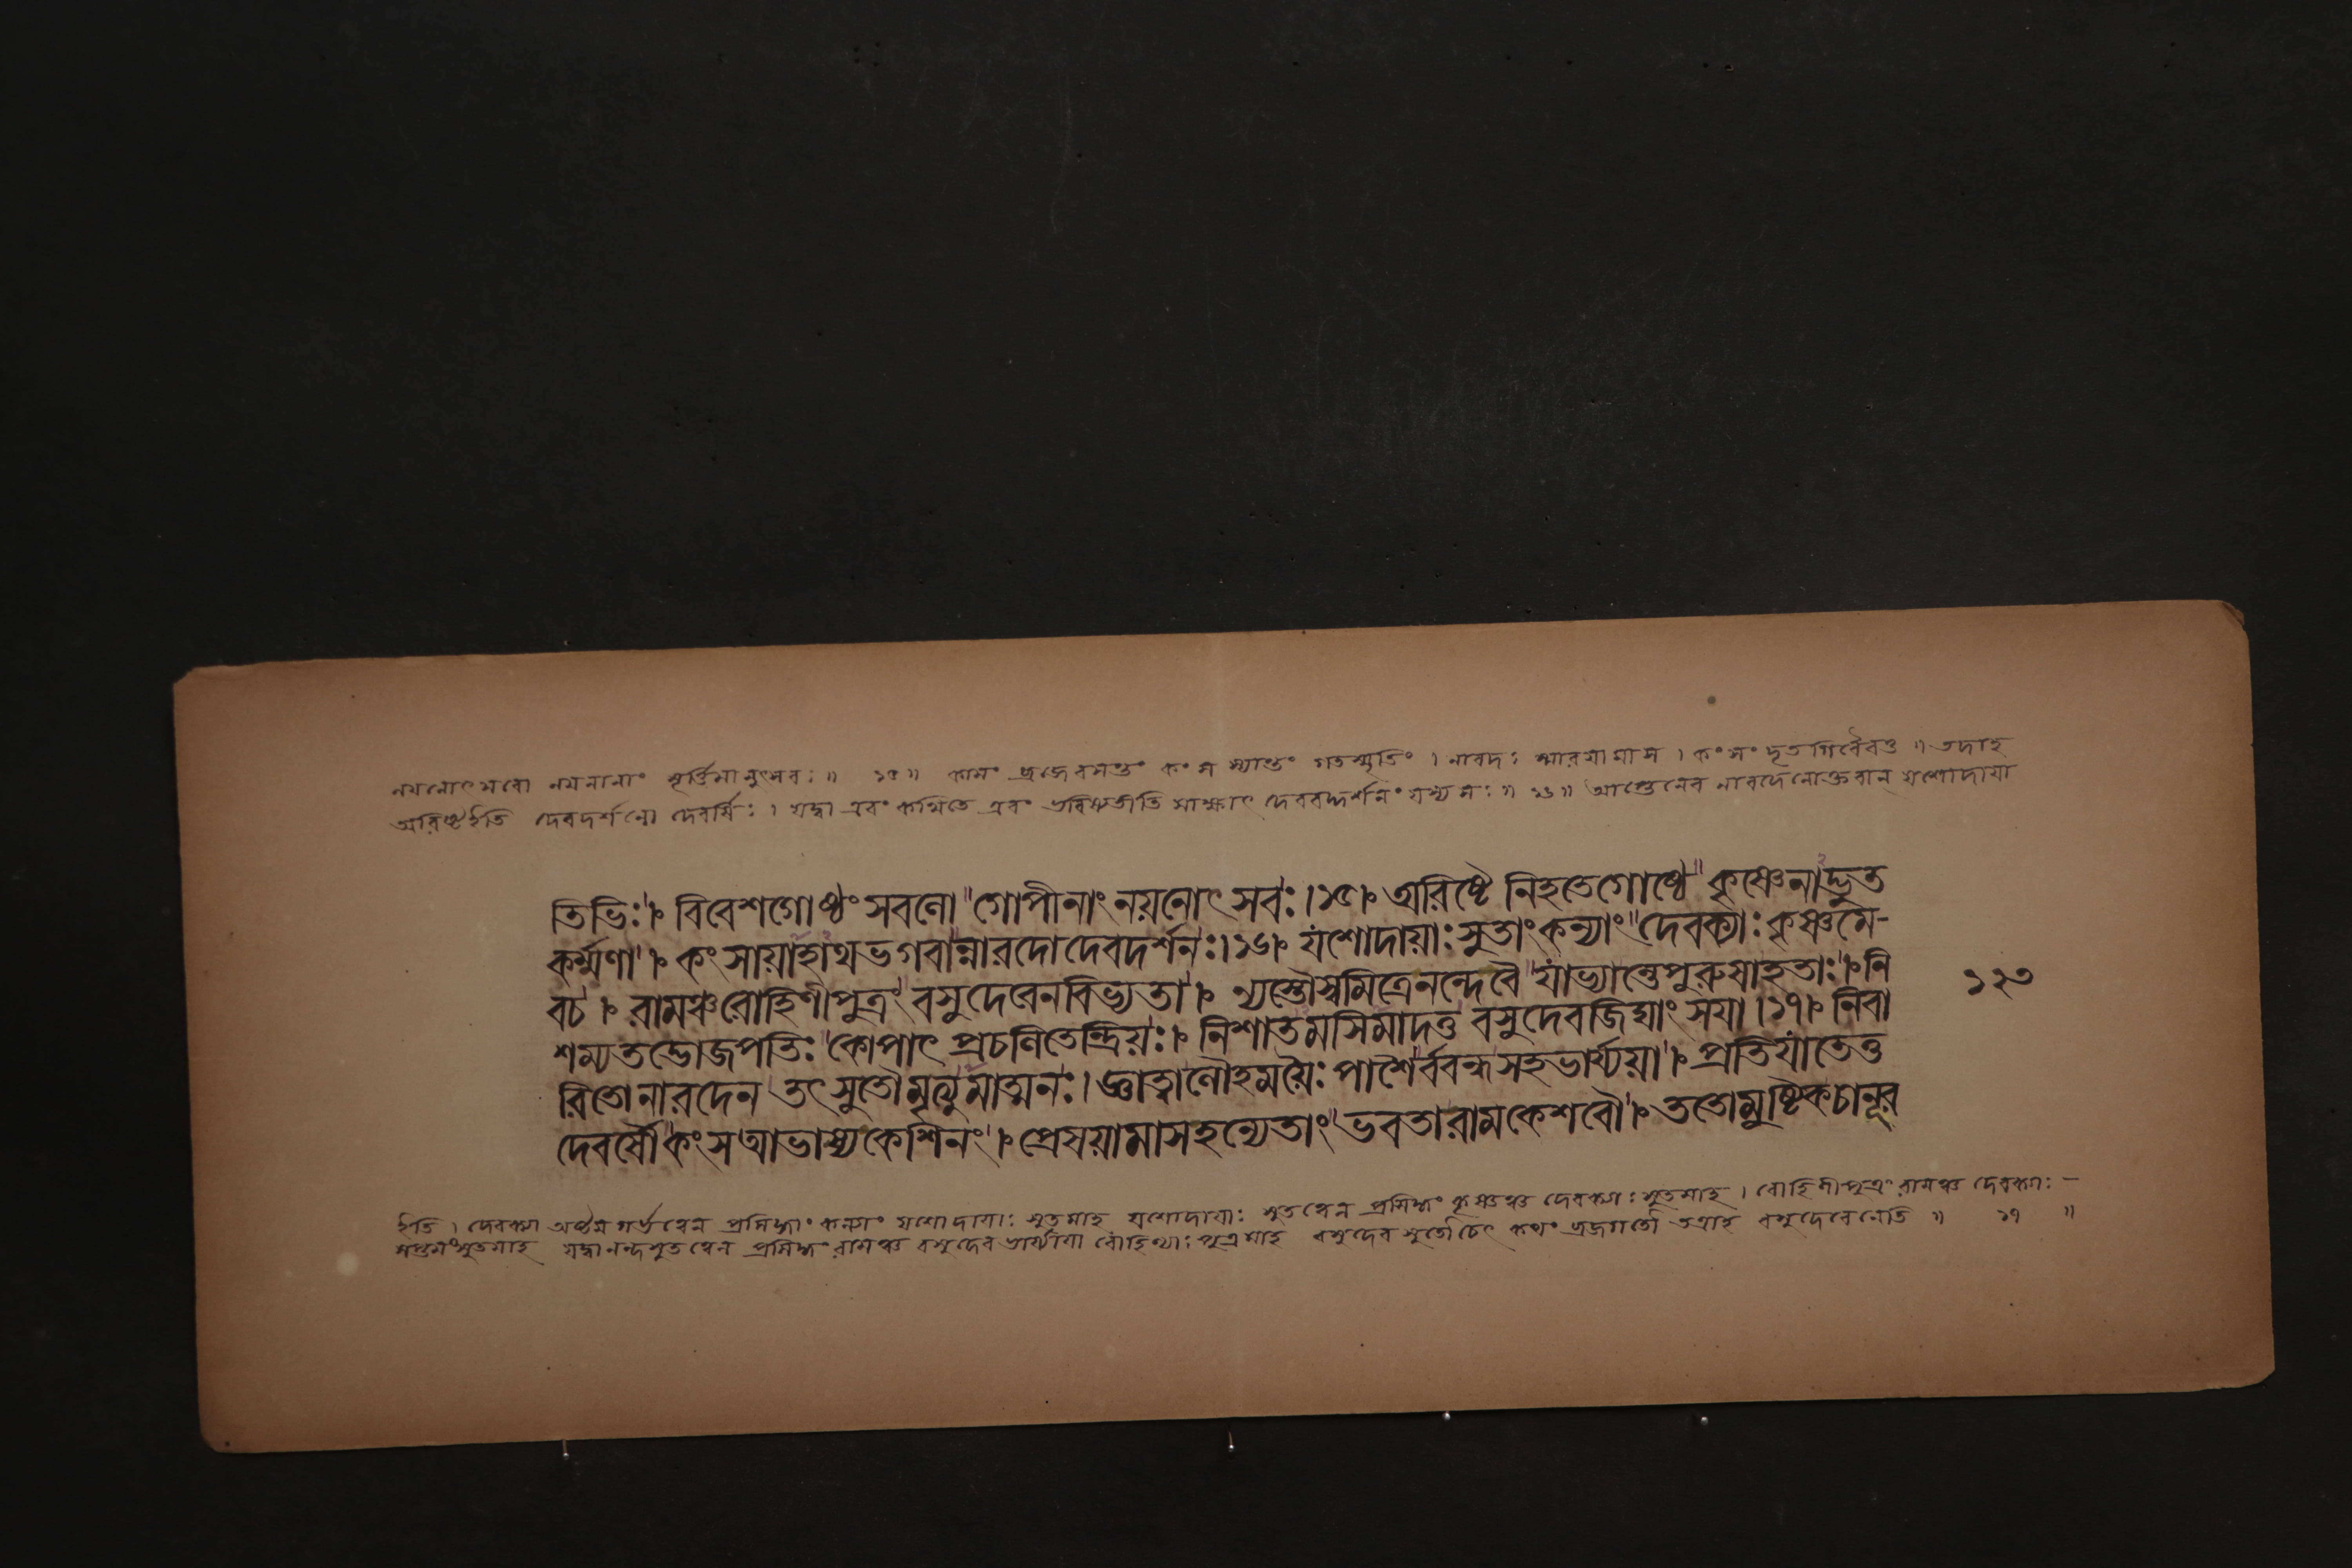 নয়নোৎসবো নয়নানাং মূর্ত্তিমানুৎসবঃ॥ ১৫॥ কামং ব্রজেবসন্তং কংসস্যান্তং গতস্মৃতিং। নারদঃ স্মারয়ামাস। কংসং দৃতগিরৈবত॥ তদাহ
অরিষ্টেইতি দেবদর্শনো দেবর্ষিঃ। যদ্বা এবং কথিতে এবং ভবিষ্যতীতি সাক্ষাৎ দেববদ্দর্শনং যস্য সঃ॥ ১৬॥ আপ্তেনেব নারদেনোক্তবান্ যশোদায়া
তিভিঃ।ঃ বিবেশগোষ্ঠং সবলো গোপীনাং নয়নোৎসবঃ।১৫।ঃ অরিষ্টে নিহতেগোষ্ঠে কৃষ্ণেনাদ্ভুত
কর্ম্মণা।ঃ কংসায়াহাথভগবান্নারদোদেবদর্শনঃ।১৬।ঃ যশোদায়াঃসুতাংকন্যাং দেবক্যাঃকৃষ্ণমে-
বচ।ঃ রামঞ্চরোহিণীপুত্রং বসুদেবেনবিভ্যতা।ঃ ন্যস্তৌস্বমিত্রেনন্দেবৈ যাভ্যান্তেপুরুষাহতাঃ।ঃনি
শম্যতদ্ভোজপতিঃ কোপাৎ প্রচলিতেন্দ্রিয়ঃ।ঃ নিশাতমসিমাদত্ত বসুদেবজিঘাংসয়া।১৭।ঃ নিবা
রিতোনারদেন তৎসুতৌমৃত্যুমাত্মনঃ। জ্ঞাত্বালৌহময়ৈঃ পাশৈর্ববন্ধসহভার্য্যয়া।ঃ প্রতিযাতেতু
দেবর্ষৌ কংসআভাষ্যকেশিনং।ঃ প্রেষয়ামাসহন্যেতাং ভবতারামকেশবৌ।ঃ ততোমুষ্টিকচানূর
১২৩
ইতি। দেবক্যা অষ্টমগর্ভত্বেন প্রসিদ্ধাং কন্যাং যশোদায়াঃ সুতামাহ যশোদায়াঃ সুতত্বেন প্রসিদ্ধং কৃষ্ণঞ্চ দেবক্যাঃ সুতমাহ। রোহিণীপুত্রং রামঞ্চ দেবক্যাঃ-
সপ্তমংসুতমাহ যদ্বা নন্দসুতত্বেন প্রসিদ্ধং রামঞ্চ বসুদেব ভার্য্যায়া রোহিণ্যাঃ পুত্রমাহ বসুদেব সুতৌচেৎ কথং ব্রজগতৌ তত্রাহ বসুদেবেনেতি॥ ১৭ ॥